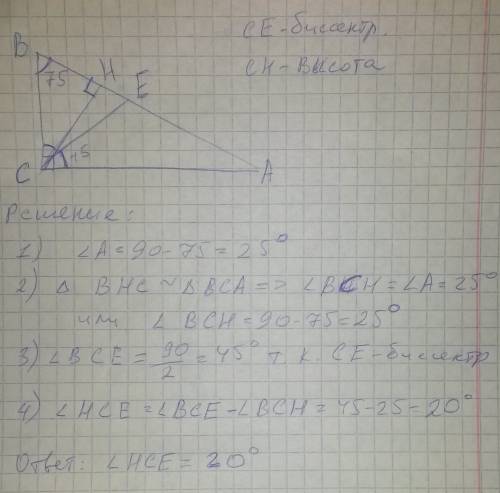 CE-биссектр.
CH-Высота
B
75
H
E
C
45
A
Решение:
1) ∠A=90-75=25°
2) △ BHC ~ △BCA => ∠BCH=∠A=25°
или ∠ BCH=90-75=25°
3) ∠BCE = 90/2 = 45° т к. CE-биссектр
4) ∠HCE =∠BCE-∠BCH=45-25=20°
Ответ: ∠HCE = 20°